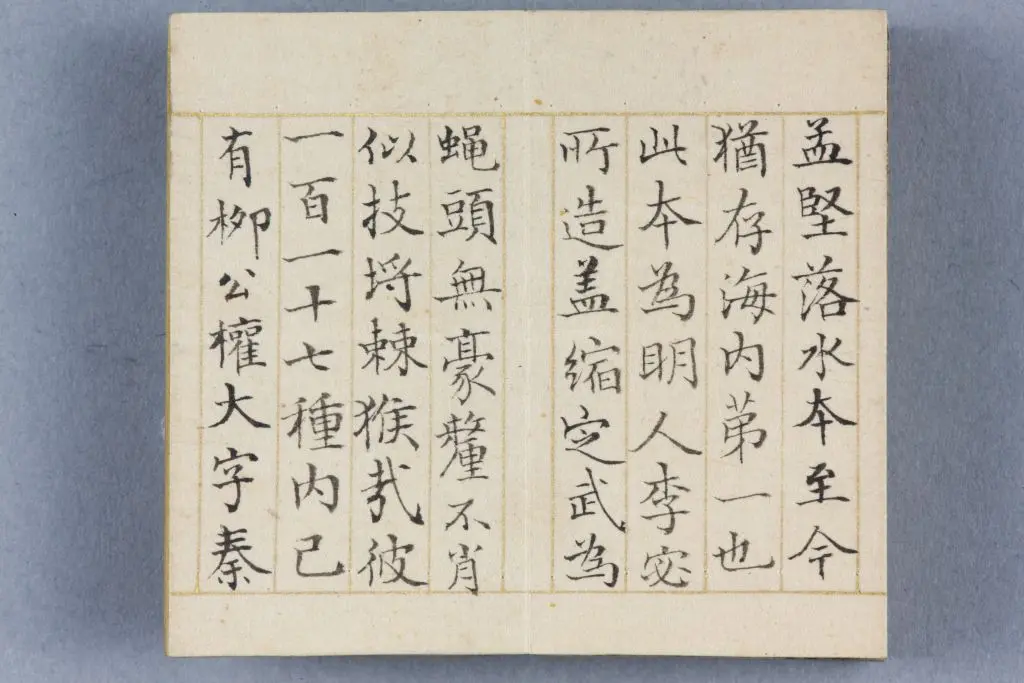 孟堅落水本至今
猶存海内苐一也
此本為明人李宓
所造盖縮定武為
蝿頭無豪釐不肖
似技埒棘猴㦲彼
一百一十七種内已
有柳公權大字秦